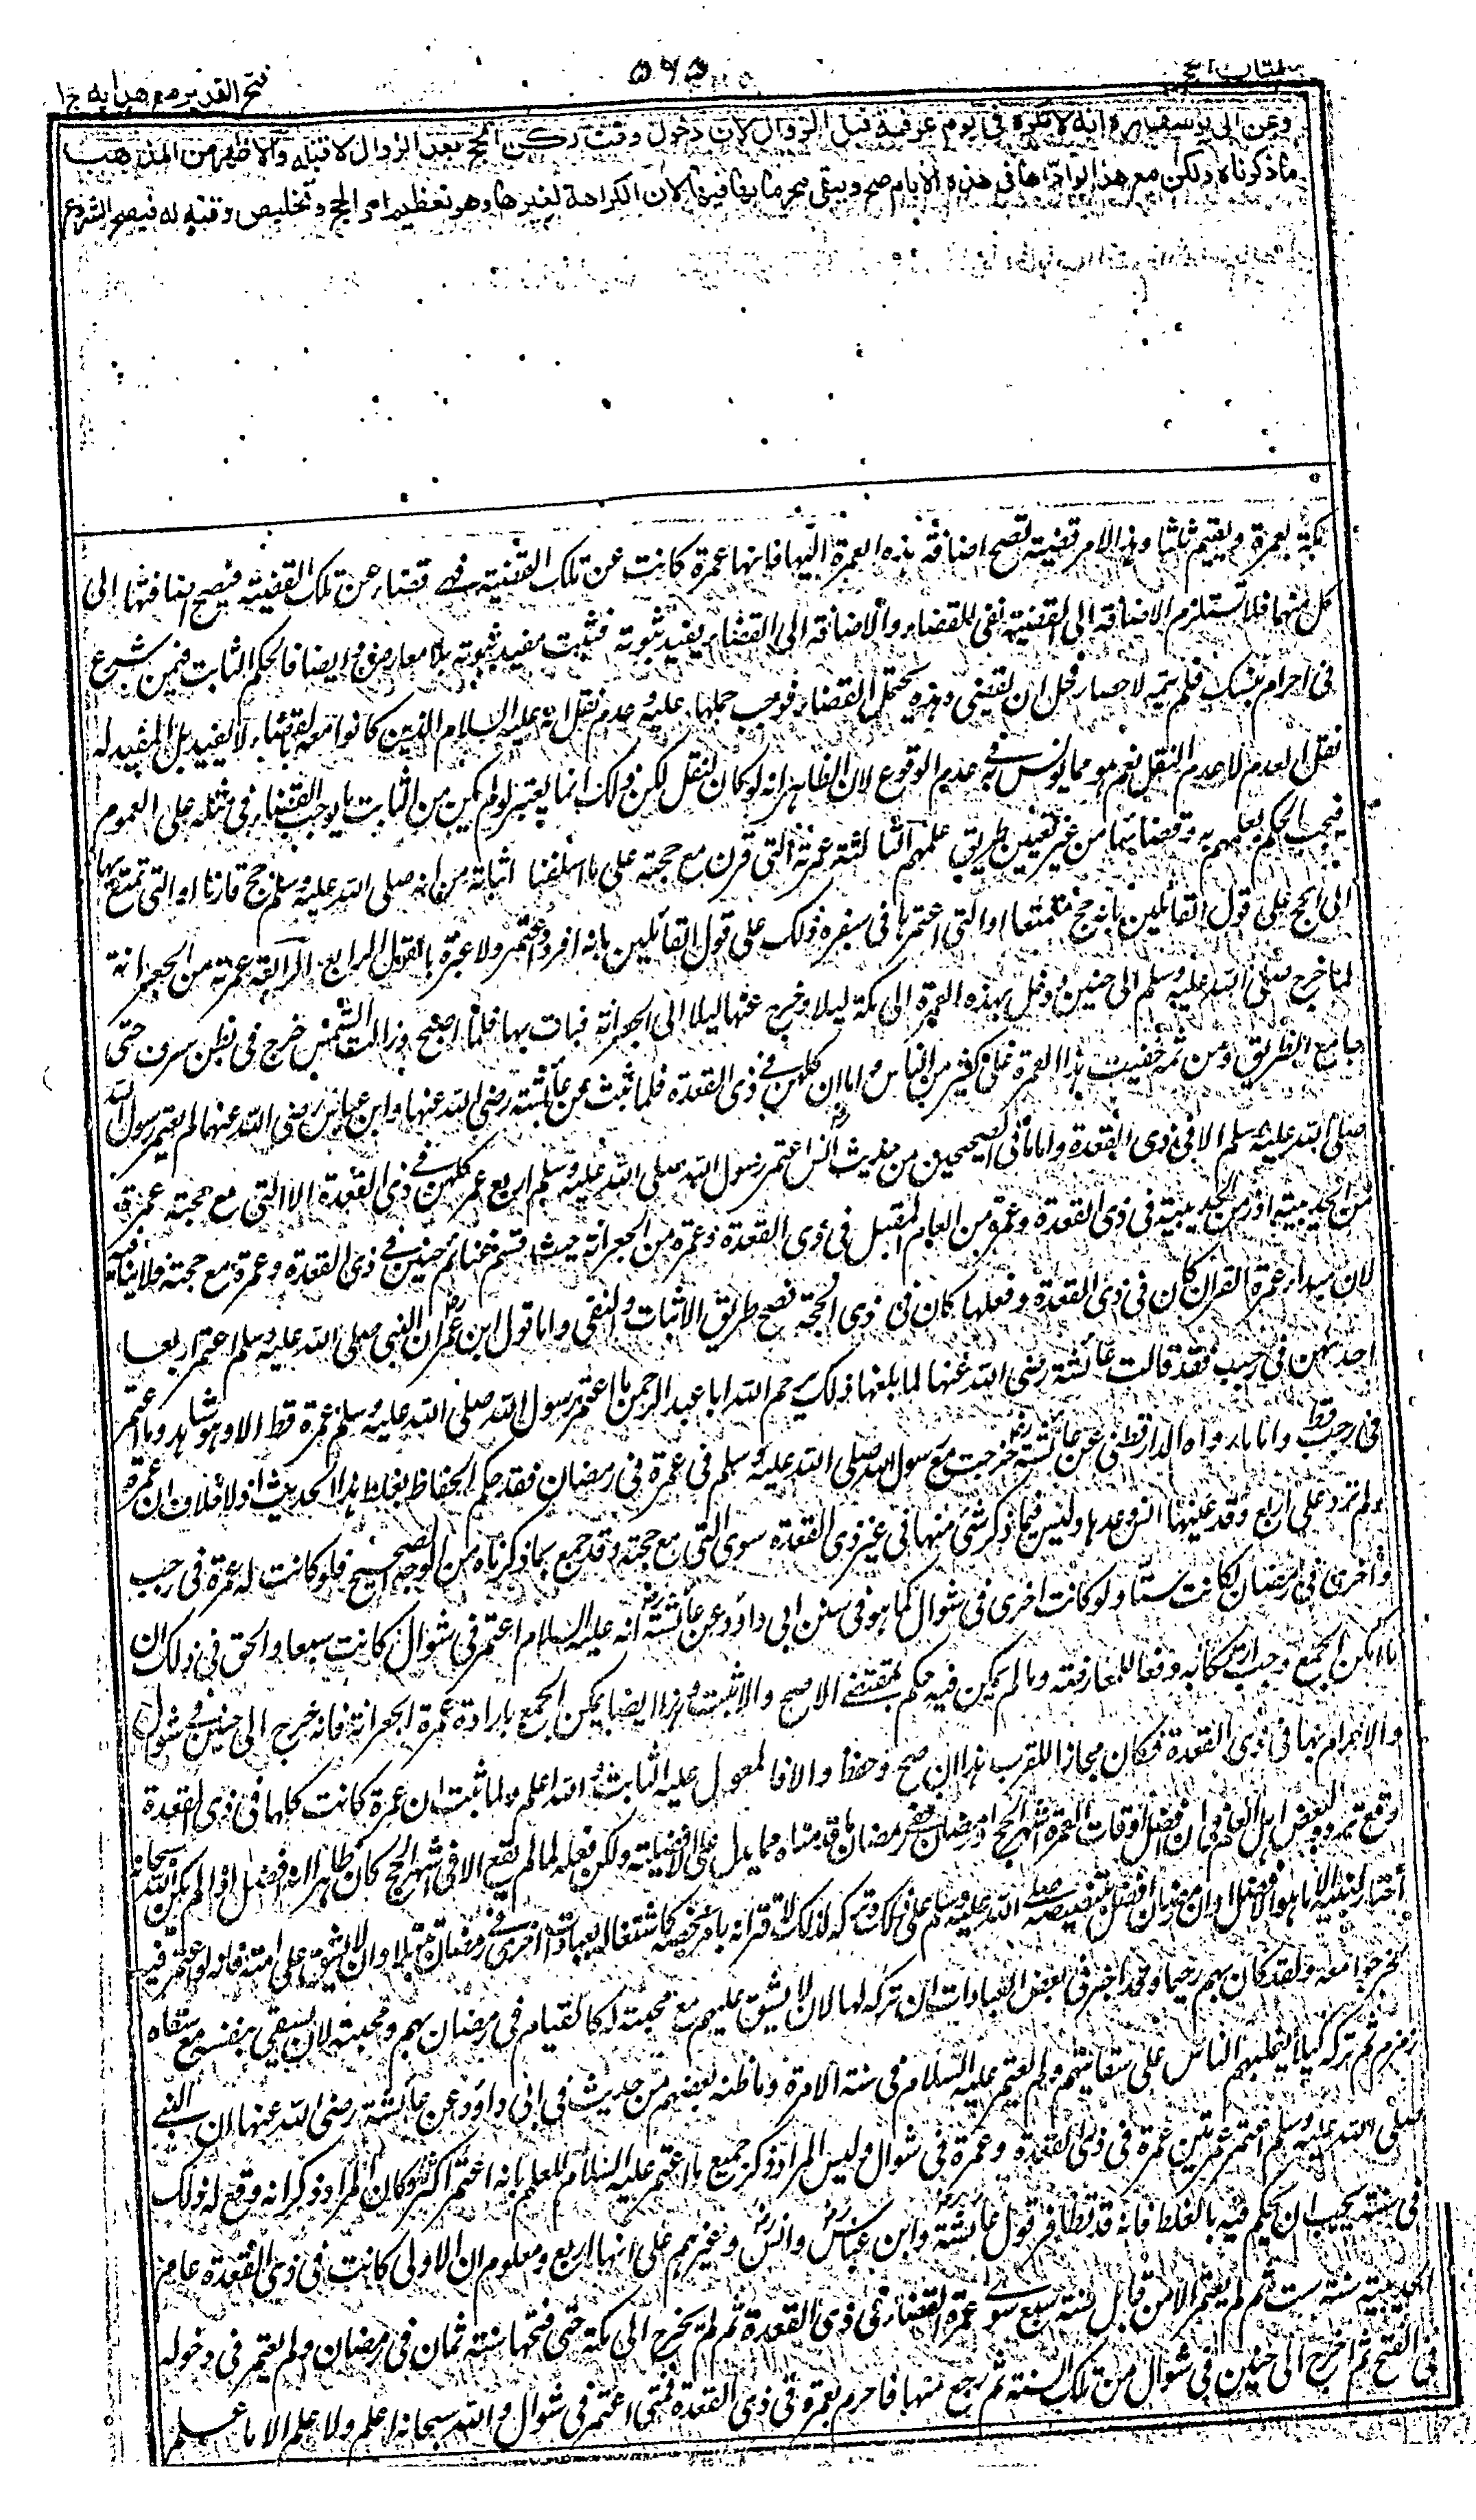 كتاب الحج
٥٦٥
فتح القدير مع هدايه ج ١
وعن ابى يوسف انها لا تكره فى يوم عرفة قبل الزوال لان دخول وقت ركن الحج بعد الزوال لا قبله والاظهر من المذهب
ما ذكرناه ولكن مع هذا لو اداها فى هذه الايام صح ويبقى محرما بها فيها لان الكراهة لغيرها وهو تعظيم امر الحج وتخليص وقته له فيصح الشروع
مكة بعمرة ويقيم ثلثا وهذا الامر قضية تصح اضافة هذه العمرة اليها فانها عمرة كانت عن تلك القضية فهى قضاء عن تلك القضية فيصح اضافتها الى
كل منهما فلا تستلزم الاضافة الى القضية نفى القضاء والاضافة الى القضاء يفيد ثبوته فثبت مفيد ثبوته بلا معارض وايضا فالحكم الثابت فيمن شرع
فى احرام بنسك فلم يتمه لاحصار فحل ان يقضى وهذه تحتمل القضاء فوجب حملها عليه وعدم نقل انه عليه السلام الذين كانوا معه بالقضاء لا يفيد بل المفيد له
نقل العدم لا عدم النقل نعم هو مما يونس فى عدم الوقوع لان الظاهر انه لو كان لنقل لكن ذلك انما يعتبر لو لم يكن من الثابت ما يوجب القضاء فى مثله على العموم
فيجب الحكم بعلمهم به وقضائها من غير تعيين طريق علمهم الثالثة عمرته التى قرن مع حجته على ما اسلفنا اثباته من انه صلى الله عليه وسلم حج قارنا او التى تمتع بها
الى الحج على قول القائلين بانه حج متمتعا او التى اعتمرها فى سفره ذلك على قول القائلين بانه افرد واعتمر ولا عبرة بالقول الرابع الرابعة عمرته من الجعرانة
لما خرج صلى الله عليه وسلم الى حنين ودخل بهذه العمرة الى مكة ليلا وخرج عنها ليلا الى الجعرانة فبات بها فلما اصبح وزالت الشمس خرج فى بطن سرف حتى
جامع الطريق ومن ثمه خفيت هذه العمرة على كثير من الناس واما ان كلهن فى ذى القعدة فلما ثبت عن عائشة رضى الله عنها وابن عباس رضى الله عنهما لم يعتمر رسول الله
صلى الله عليه وسلم الا فى ذى القعدة واما ما فى الصحيحين من حديث انس اعتمر رسول الله صلى الله عليه وسلم اربع عمر كلهن فى ذى القعدة الا التى مع حجته عمرة
من الحديبية او زمن الحديبية فى ذى القعدة وعمرة من العام المقبل فى ذى القعدة وعمرة من الجعرانة حيث قسم غنائم حنين فى ذى القعدة وعمرة مع حجته فلا ينافيه
لان مبدأ عمرة القران كان فى ذى القعدة وفعلها كان فى ذى الحجة فصح طريق الاثبات والنفى واما قول ابن عمر ان النبى صلى الله عليه وسلم اعتمر اربعا
احدهن فى رجب فقد قالت عائشة رضى الله عنها لما بلغها ذلك يرحم الله ابا عبد الرحمن ما اعتمر رسول الله صلى الله عليه وسلم عمرة قط الا وهو شاهد وما اعتمر
فى رجب قط واما ما رواه الدارقطنى عن عائشة خرجت مع رسول الله صلى الله عليه وسلم فى عمرة فى رمضان فقد حكم الحفاظ بغلط هذا الحديث اذ لا خلاف ان عمره
لم تزد على اربع وقد عينها انس وعدها وليس فيما ذكر شئ منها فى غير ذى القعدة سوى التى مع حجته وقد جمع بما ذكرناه من الوجه الصحيح فلو كانت له عمرة فى رجب
واخرى فى رمضان لكانت ستا ولو كانت اخرى فى شوال كما هو فى سنن ابى داؤد عن عائشة انه عليه السلام اعتمر فى شوال كانت سبعا والحق فى ذلك ان
ما امكن الجمع وجب ارتكابه دفعا للمعارضة وما لم يمكن فيه حكم بمقتضى الاصح والاثبت وهذا ايضا يمكن الجمع بارادة عمرة الجعرانة فانه خرج الى حنين فى شوال
والاحرام بها فى ذى القعدة فكان مجازا للقرب هذا ان صح وحفظ والا فالمعول عليه الثابت والله اعلم ولما ثبت ان عمره كانت كلها فى ذى القعدة
وقع تردد لبعض اهل العلم فى ان افضل اوقات العمرة اشهر الحج او رمضان ففى رمضان ما قدمناه مما يدل على الافضلية ولكن فعله لما لم يقع الا فى اشهر الحج كان ظاهرا انه افضل اذ لم يكن الله سبحانه
اختار لنبيه الا ما هو الافضل او ان رمضان افضل بتنصيصه صلى الله عليه وسلم على ذلك وتركه لذلك لاقترانه بامر يخصه كاشتغاله بعبادات اخرى فى رمضان تبتلا وان لا يشق على امته فانه لو اعتمر فيه
لخرجوا معه ولقد كان بهم رحيما وقد اخبر فى بعض العبادات ان تركه لها لان لا يشق عليهم مع محبته له كالقيام فى رمضان بهم ومحبته لان يستقى بنفسه مع سقاة
زمزم ثم تركه كيلا يغلبهم الناس على سقايتهم ولم يعتمر عليه السلام فى سنة الا مرة وما ظنه بعضهم من حديث فى ابى داؤد عن عائشة رضى الله عنها ان النبى
صلى الله عليه وسلم اعتمر عمرتين عمرة فى ذى القعدة وعمرة فى شوال وليس المراد ذكر جميع ما اعتمر عليه السلام للعلم بانه اعتمر اكثر فكان المراد ذكر انه وقع له ذلك
فى سنة يجب ان يحكم فيه بالغلط فانه قد تظافر قول عائشة وابن عباس وانس وغيرهم على انها اربع ومعلوم ان الاولى كانت فى ذى القعدة عام
الحديبية سنة ست ثم لم يعتمر الا من قابل سنة سبع سوى عمرة القضاء فى ذى القعدة ثم لم يخرج الى مكة حتى فتحها سنة ثمان فى رمضان ولم يعتمر فى دخوله
فى الفتح ثم خرج الى حنين فى شوال من تلك السنة ثم رجع منها فاحرم بعمرة فى ذى القعدة فمتى اعتمر فى شوال والله سبحانه اعلم ولا علم الا ما علم